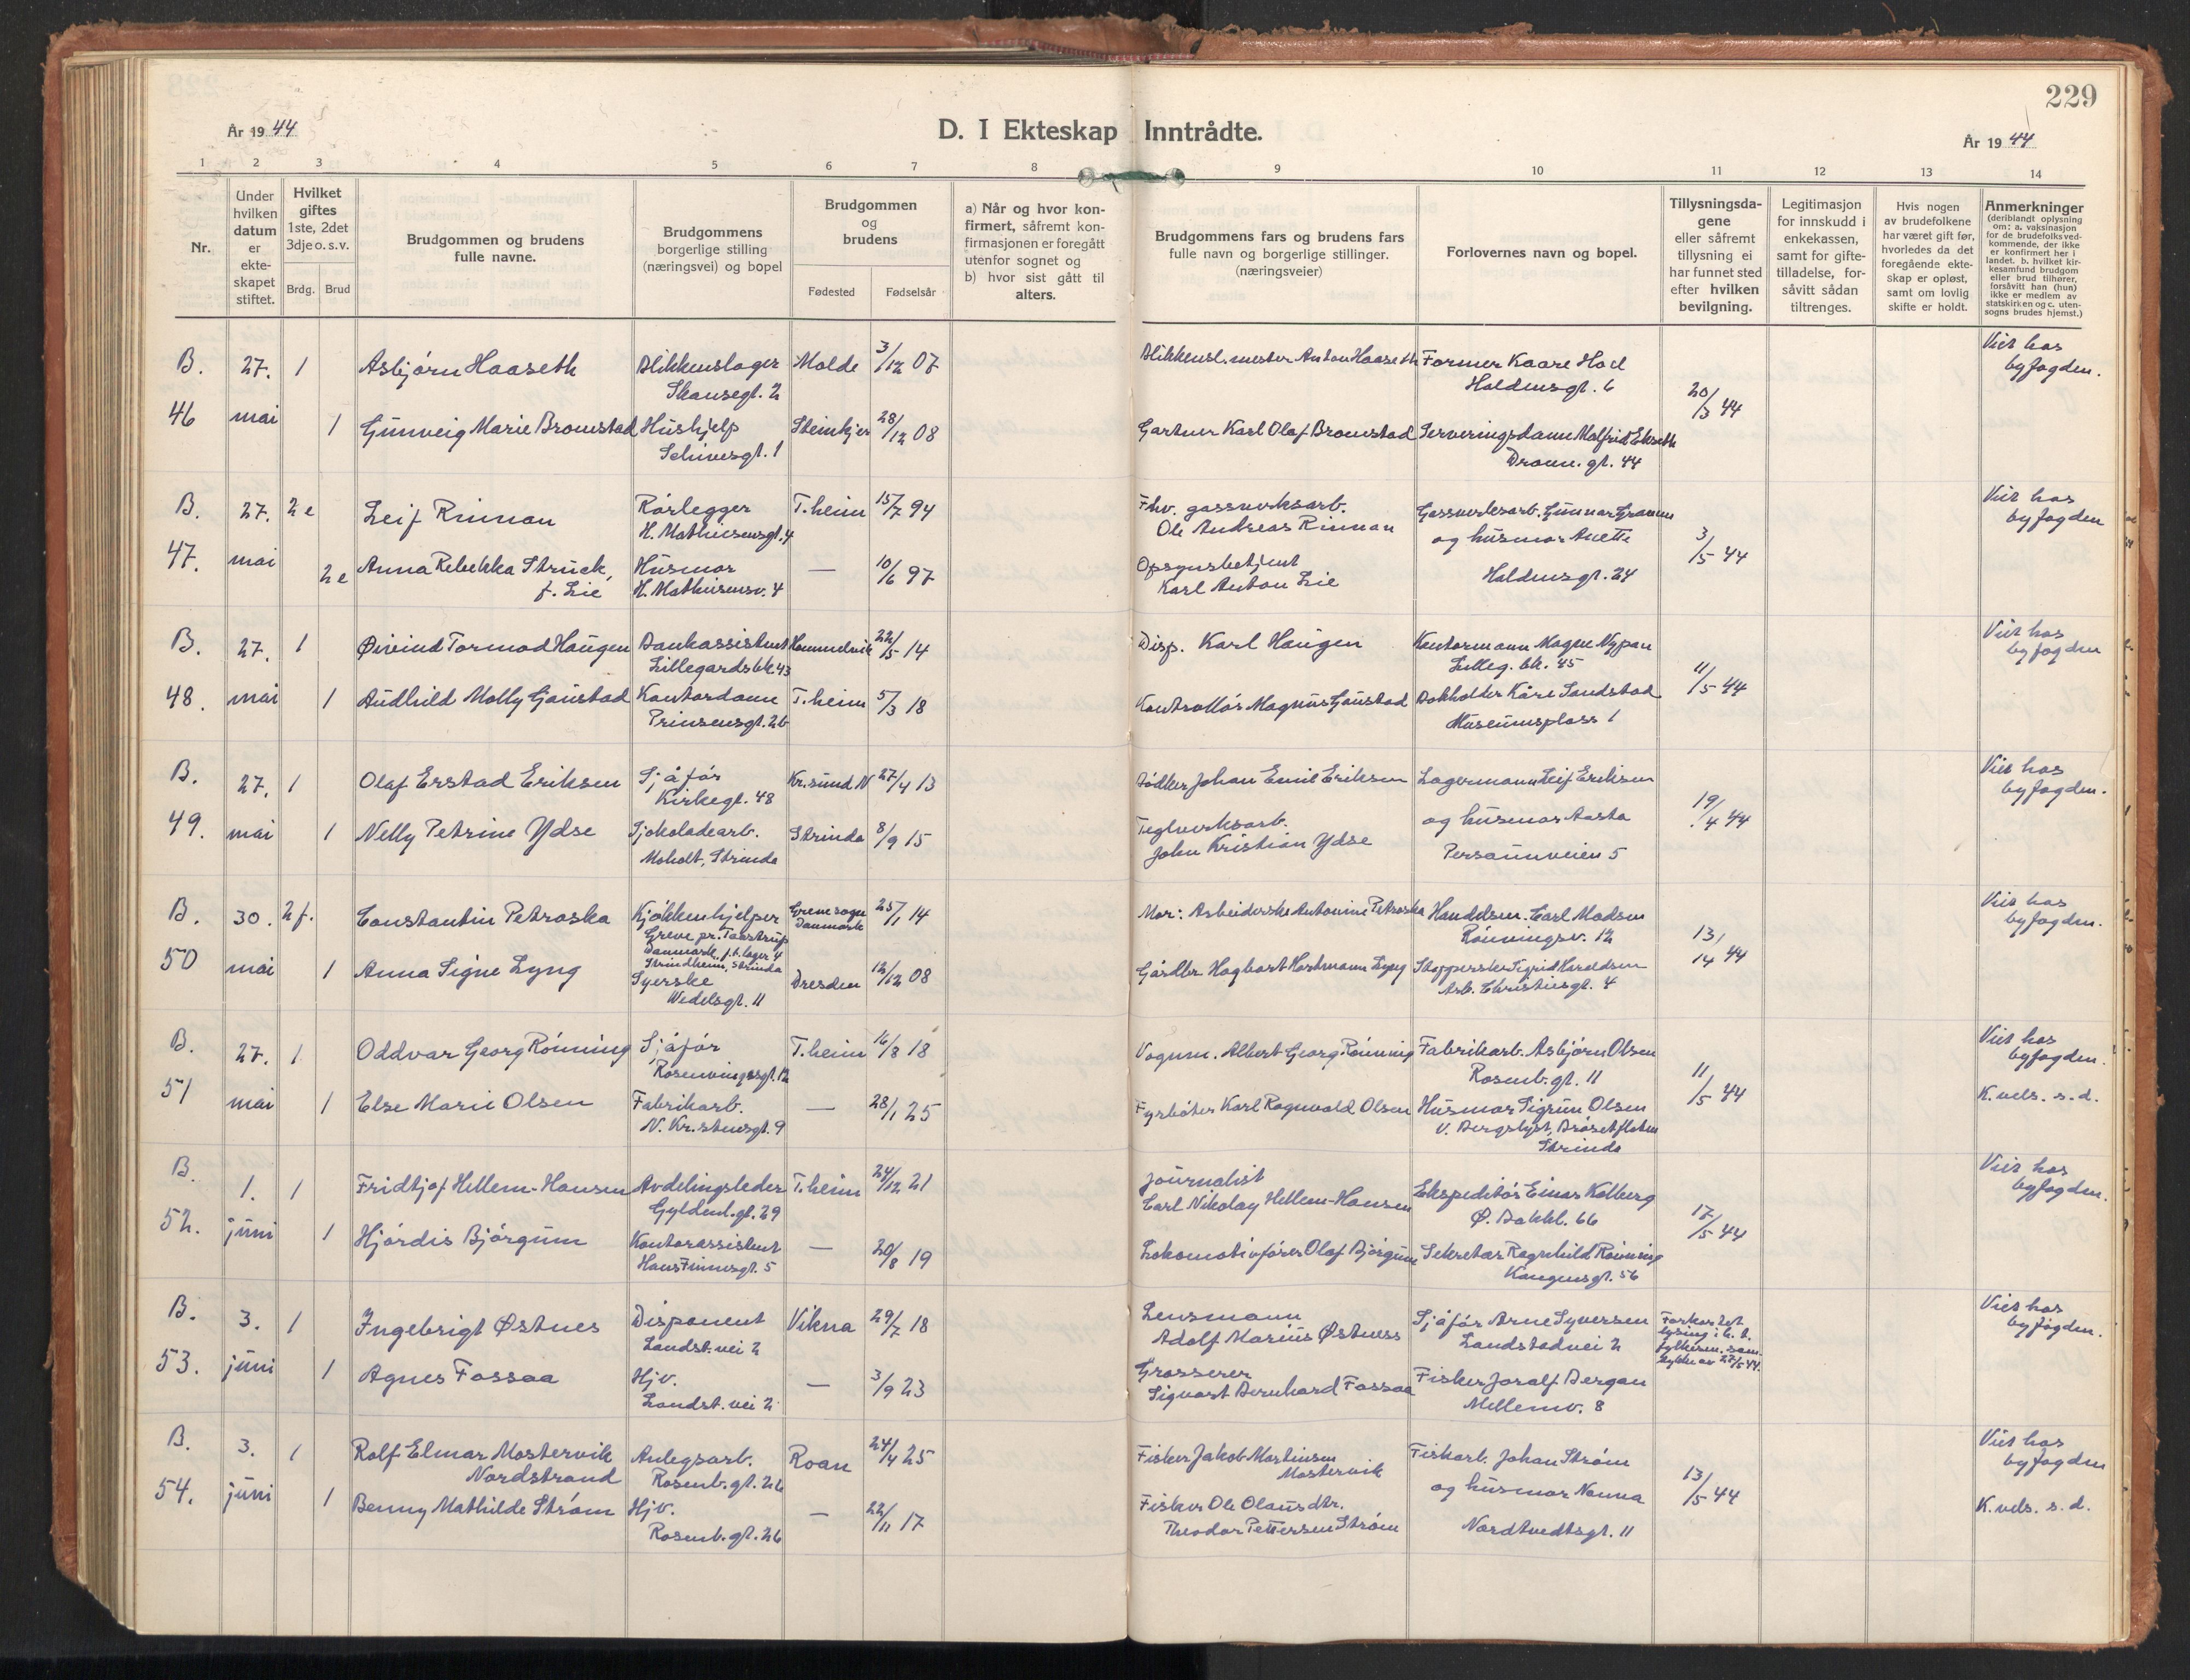 229
År 1944
D. I Ekteskap Inntrådte.
År 1944
1 2 3 4 5 6 7 8 9 10 11 12 13 14
Nr.
Under hvilken datum er ekte-skapet stiftet.
Hvilket giftes 1ste, 2det 3dje o. s. v.
Brdg. Brud
Brudgommen og brudens fulle navne.
Brudgommens borgerlige stilling (næringsvei) og bopel
Brudgommen og brudens
Fødested Fødselsår
a) Når og hvor kon-firmert, såfremt kon-firmasjonen er foregått utenfor sognet og
b) hvor sist gått til alters.
Brudgommens fars og brudens fars fulle navn og borgerlige stillinger. (næringsveier)
Forlovernes navn og bopel.
Tillysningsda-gene eller såfremt tillysning ei har funnet sted efter hvilken bevilgning.
Legitimasjon for innskudd i enkekassen, samt for gifte-tilladelse, for-såvitt sådan tiltrenges.
Hvis nogen av brudefolkene har været gift før, hvorledes da det foregående ekte-skap er opløst, samt om lovlig skifte er holdt.
Anmerkninger (deriblandt oplysning om: a. vaksinasjon for de brudefolksved-kommende, der ikke er konfirmert her i landet. b. hvilket kir-kesamfund brudgom eller brud tilhører, forsåvitt han (hun) ikke er medlem av statskirken og c. uten-sogns brudes hjemst.)
B. 27. 1 Asbjørn Haaseth Blikkenslager Molde 3/12 07 Blikkensl.mester Anton Haaseth Former Kaare Hoel Viet hos
Skansegt. 2 Holdensgt. 6 20/3 44 byfogden.
46 mai 1 Gunveig Marie Bromstad Hushjelp Steinkjer 28/12 08 Gartner Karl Olaf Bromstad Serveringsdame Malfrid Ekseth
Schivesgt. 1 Dronn. gt. 44
B. 27. 2 e Leif Rinnan Rørlegger T.heim 15/7 94 Fhv. gassverksarb. Gassverksarb. Gunnar Gramm Viet hos
H. Mathiesensgt. 4 Ole Andreas Rinnan og husmor Anette 3/5 44 byfogden
47. mai 2 e Anna Rebekka Struck, Husmor — 10/6 97 Opsynsbetjent Holdensgt. 24
f. Lie H. Mathiesensv. 4 Karl Anton Lie
B. 27. 1 Øivind Tormod Haugen Bankassistent Hommelvik 22/5 14 Disp. Karl Haugen Kontormann Magne Nypan Viet hos
Lillegardsbk. 43 Lilleg. bk. 45 11/5 44 byfogden
48. mai 1 Audhild Molly Gaustad Kontordame T.heim 5/3 18 Kontrollør Magnus Gaustad Bokholder Kåre Sandstad
Prinsensgt. 2b Museumsplass 1
B. 27. 1 Olaf Erstad Eriksen Sjåfør Kr.sund N 27/4 13 Bødker Johan Emil Eriksen Lagermann Leif Eriksen Viet hos
Kirkegt. 48 19/4 44 byfogden.
49. mai 1 Nelly Petrine Ydse Sjokoladearb. Strinda 8/9 15 Teglverksarb. og husmor Aasta
Moholt, Strinda John Kristian Ydse Persaunveien 5
B. 30. 2 f. Constantin Petroska Kjøkkenhjelper Greve sogn Danmark 25/1 14 Mor: Arbeiderske Antonine Petroska Handelsm. Carl Madsen Viet hos
Greve pr. Taastrup Rønningsv. 12 byfogden.
Danmark, f.t. lager 4
Strindheim, Strinda 13/14 44
50 mai 1 Anna Signe Lyng Syerske Dresden 12/12 08 Gårdbr Hagbart Hartmann Lyng Stopperske Sigrid Haraldsen
Wedelsgt. 11 Arb. Christiesgt. 4
B. 27. 1 Oddvar Georg Rønning Sjåfør T.heim 16/8 18 Vognm. Albert Georg Rønning Fabrikarb. Asbjørn Olsen Viet hos
Rosenvingesgt. 12 Rosenb. gt. 11 11/5 44 byfogden.
51 mai 1 Else Marie Olsen Fabrikarb. — 28/1 25 Fyrbøter Karl Ragnvald Olsen Husmor Sigrun Olsen K. vels. s. d.
N. Kr.stensgt. 9 V. Bergslyst, Brøsetflaten
Strinda
B. 1. 1 Fridtjof Hellem-Hansen Avdelingsleder T.heim 24/12 21 Journalist Ekspeditør Einar Kolberg Viet hos
Gyldenl. gt. 29 Carl Nikolay Hellem-Hansen Ø. Bakkl. 66 17/5 44 byfogden.
52. juni 1 Hjørdis Bjørgum Kontorassistent — 20/8 19 Lokomotivfører Olaf Bjørgum Sekretær Ragnhild Rønning
Hans Finnesgt. 5 Kongensgt. 56
B. 3. 1 Ingebrigt Østnes Disponent Vikna 29/7 18 Lensmann Sjåfør Arne Syversen Forkortet Viet hos
Landst. vei 2 Adolf Marius Østness Landstadvei 2 lysing i h. t. byfogden.
fylkesm. sam-
53. juni 1 Agnes Fossaa Hjv. — 3/9 23 Grosserer Fisker Joralf Bergan tykke av 27/5 44.
Landst. vei 2 Sigvart Bernhard Fossaa Mellemv. 8
B. 3. 1 Rolf Elmar Mostervik Anlegsarb. Roan 24/4 25 Fisker Jakob Martinsen Fiskarb. Johan Strøm Viet hos
Nordstrand Rosenb. gt. 26 Mostervik og husmor Nanna 13/5 44 byfogden
54. juni 1 Benny Mathilde Strøm Hjv. — 22/11 17 Fisker Ole Olaus dtr. K. vels. s. d.
Rosenb. gt. 26 Theodor Pettersen Strøm Nordtvedtsgt. 11